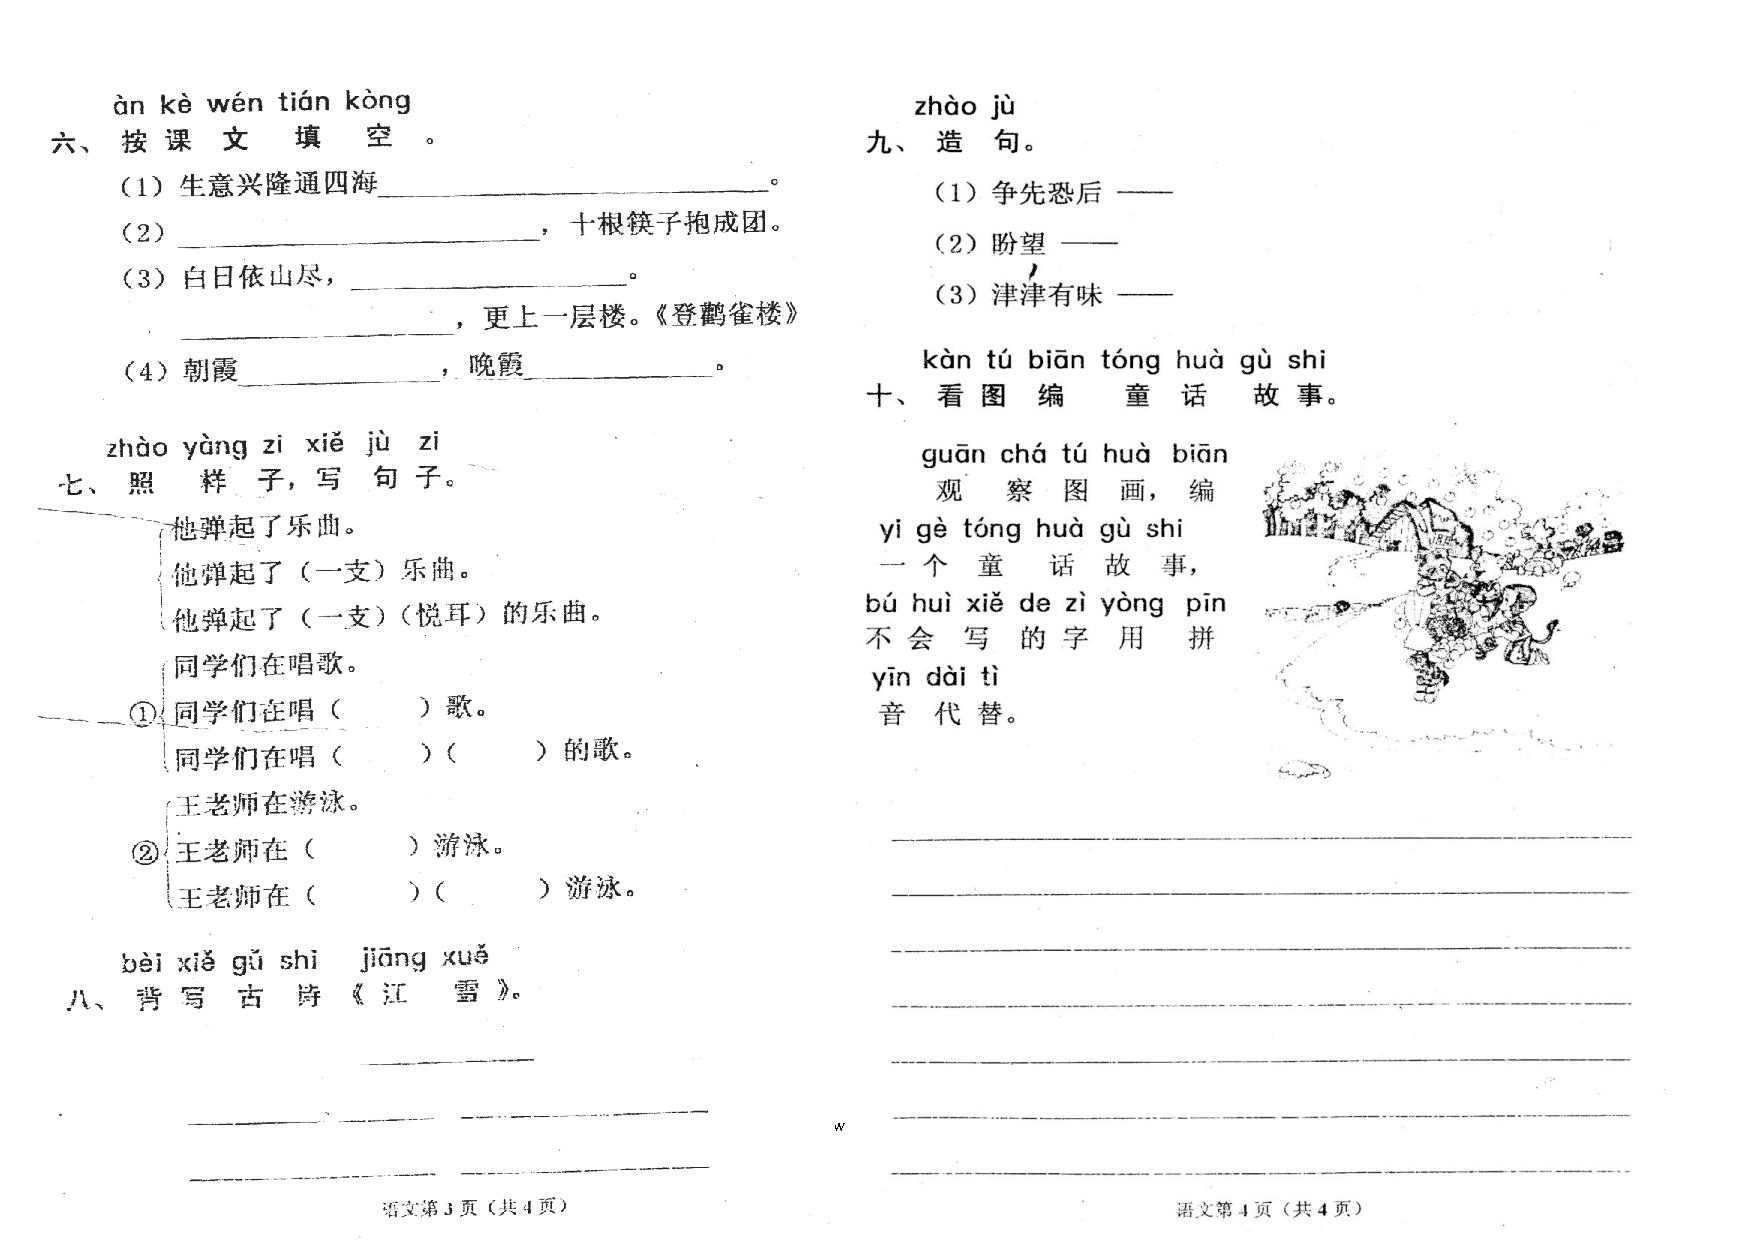 àn kè wén tián kòng
六、按课文填空。
（1）生意兴隆通四海____________________。
（2）____________________，十根筷子抱成团。
（3）白日依山尽，____________________。
____________________，更上一层楼。《登鹳雀楼》
（4）朝霞______________，晚霞______________。
zhào yàng zi xiě jù zi
七、照样子，写句子。
他弹起了乐曲。
他弹起了（一支）乐曲。
他弹起了（一支）（悦耳）的乐曲。
同学们在唱歌。
①同学们在唱（ ）歌。
同学们在唱（ ）（ ）的歌。
王老师在游泳。
②王老师在（ ）游泳。
王老师在（ ）（ ）游泳。
bèi xiě gǔ shi jiāng xuě
八、背写古诗《江雪》。
语文第3页（共4页）
zhào jù
九、造句。
（1）争先恐后 ——
（2）盼望 ——
（3）津津有味 ——
kàn tú biān tóng huà gù shi
十、看图编童话故事。
guān chá tú huà biān
观察图画，编
yi gè tóng huà gù shi
一个童话故事，
bú huì xiě de zì yòng pīn
不会写的字用拼
yīn dài tì
音代替。
w
语文第4页（共4页）